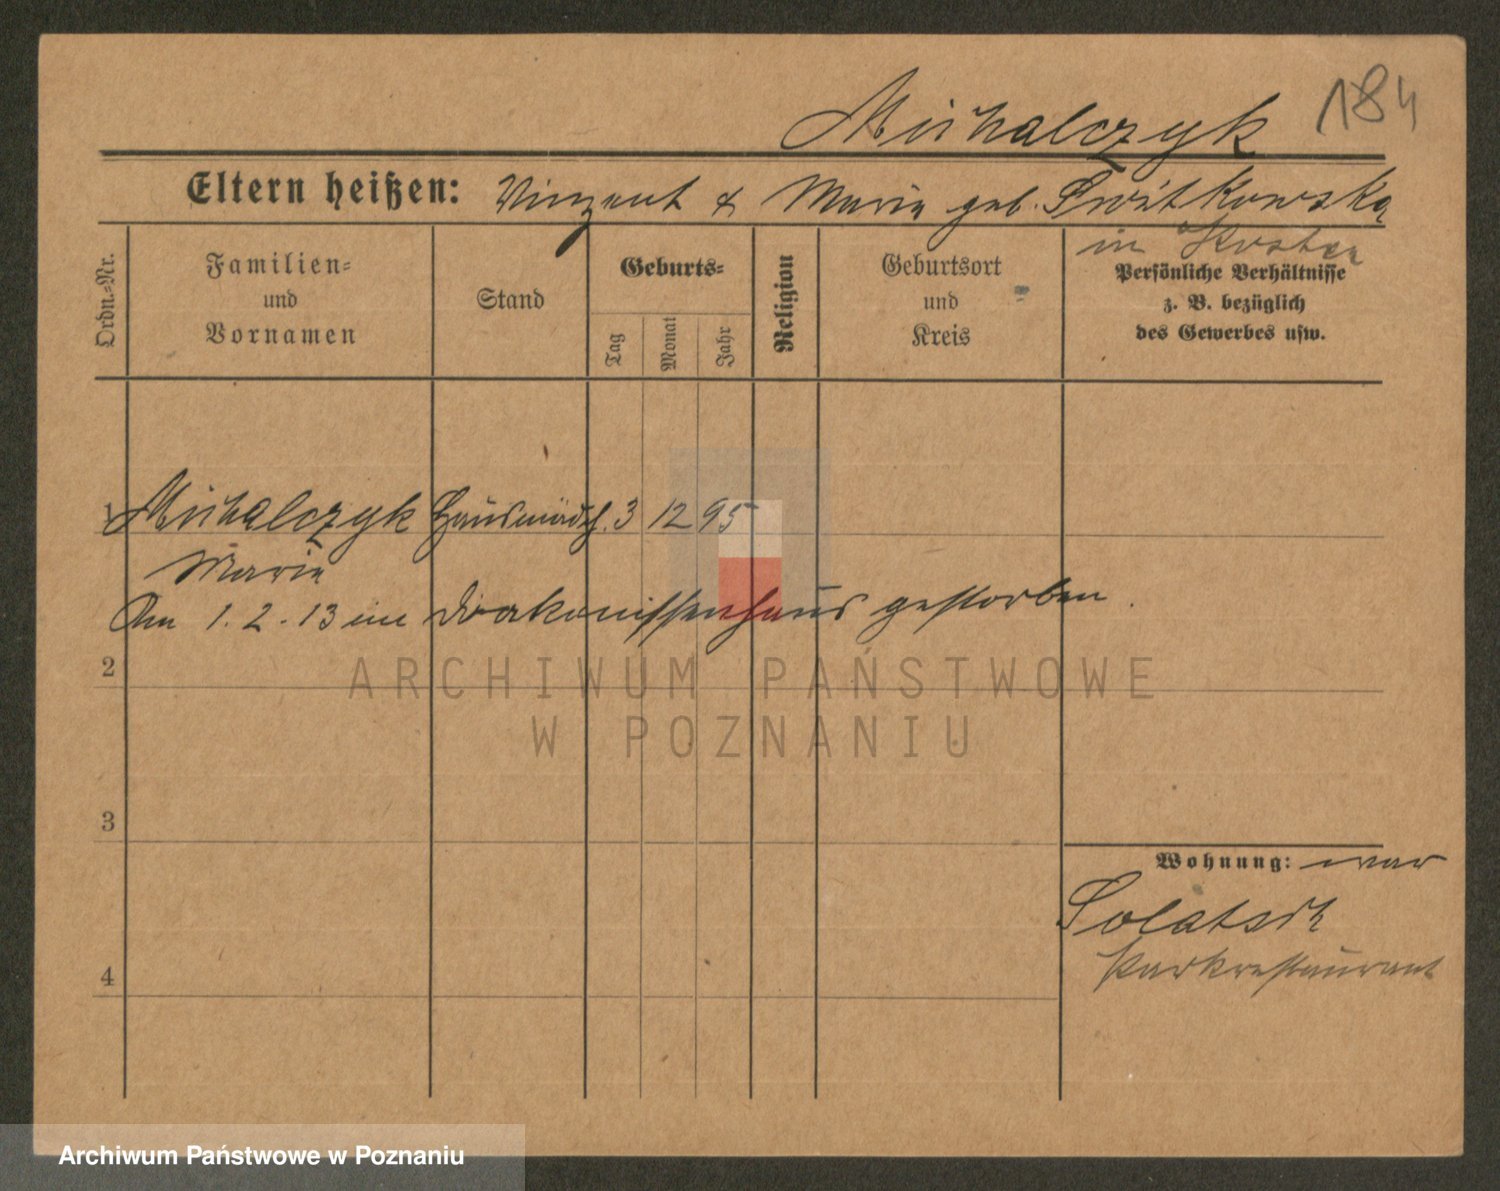 184
Michalczyk
Eltern heißen: Vinzent & Marie geb. Switkowska
in Kosten
Ordn.=Nr.
Familien=
und
Vornamen
Stand
Geburts=
Tag
Monat
Jahr
Religion
Geburtsort
und
Kreis
Persönliche Verhältnisse
z. B. bezüglich
des Gewerbes usw.
1 Michalczyk Hausmädch. 3 12 95
Marie
Am 1. 2. 13 im Diakonissenhaus gestorben.
2
3
4
Wohnung: war
Solatsch
Parkrestaurant
ARCHIWUM PAŃSTWOWE
W POZNANIU
Archiwum Państwowe w Poznaniu